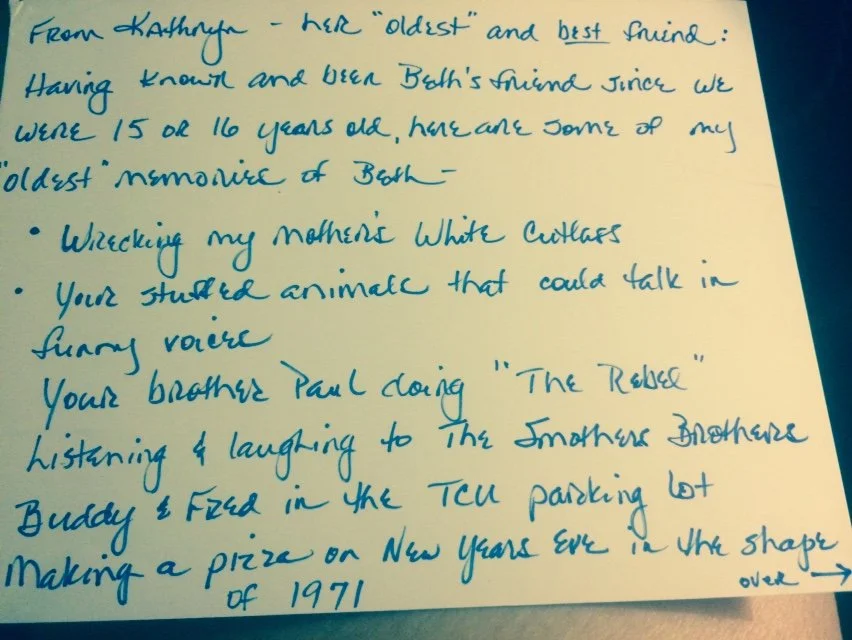 From Kathryn - her "oldest" and best friend:
Having known and been Beth's friend since we
were 15 or 16 years old, here are some of my
"oldest" memories of Beth—
• Wrecking my mother's White Cutlass
• Your stuffed animals that could talk in
funny voices
Your brother Paul doing "The Rebel"
Listening & laughing to The Smothers Brothers
Buddy & Fred in the TCU parking lot
Making a pizza on New Years Eve in the shape
of 1971
over →